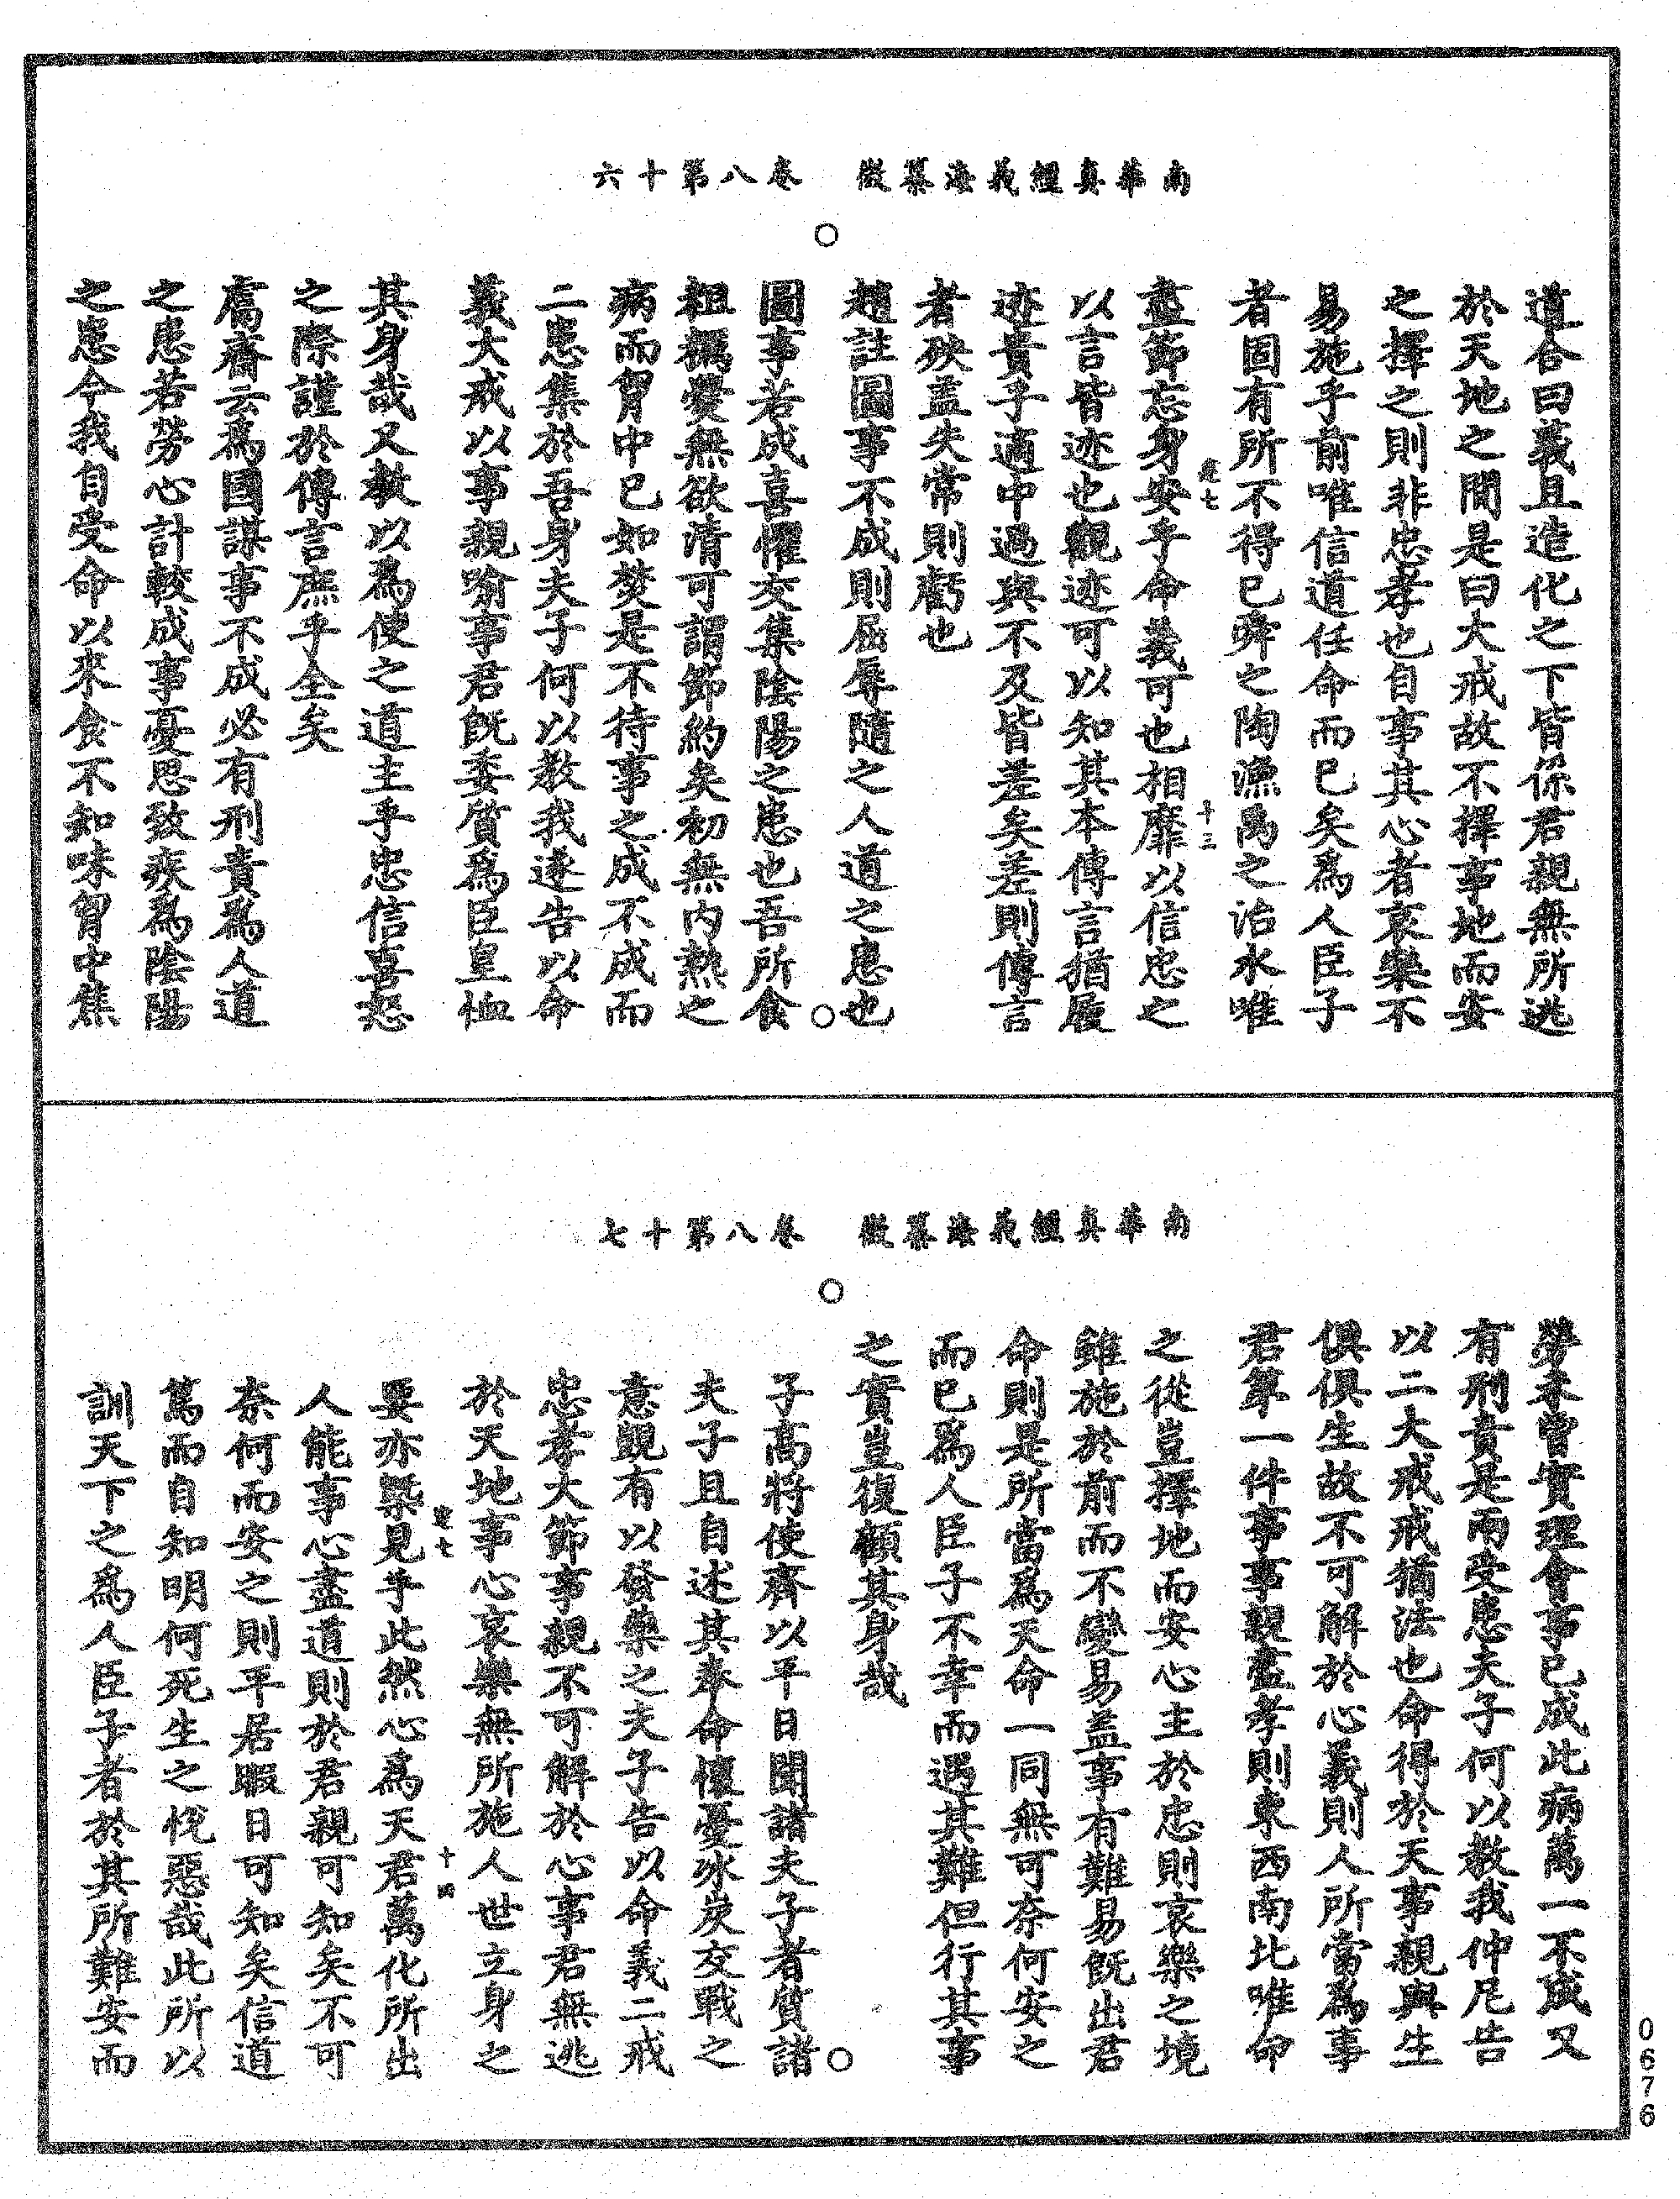 南華真經義海纂微　卷八第十六
道合曰義且造化之下皆係君親無所逃
於天地之間是曰大戒故不擇事地而安
之擇之則非忠孝也自事其心者哀樂不
易施乎前唯信道任命而已矣為人臣子
者固有所不得已舜之陶漁禹之治水唯
盡節忘身安乎命義可也相靡以信忠之
以言皆迹也觀迹可以知其本傳言猶履
迹貴乎適中過與不及皆差矣差則傳言
者殃蓋失常則虧也
趙註圖事不成則屈辱隨之人道之患也
圖事若成喜懼交集陰陽之患也吾所食
粗糲爨無欲清可謂節約矣初無内熱之
病而胷中已如焚是不待事之成不成而
二患集於吾身夫子何以教我遂告以命
義大戒以事親喻事君既委質為臣皇恤
其身哉又教以為使之道主乎忠信喜怒
之際謹於傳言庶乎全矣
鬳齋云為國謀事不成必有刑責為人道
之患若勞心計較成事憂思致疾為陰陽
之患今我自受命以來食不知味胷中焦
卷七
十三
南華真經義海纂微　卷八第十七
勞未嘗實理會事已成此病萬一不成又
有刑責是兩受患夫子何以教我仲尼告
以二大戒戒猶法也命得於天事親與生
俱俱生故不可解於心義則人所當為事
君第一件事事親盡孝則東西南北唯命
之從豈擇地而安心主於忠則哀樂之境
雖施於前而不變易蓋事有難易既出君
命則是所當為天命一同無可奈何安之
而已為人臣子不幸而遇其難但行其事
之實豈復顧其身哉
子高將使齊以平日聞諸夫子者質諸
夫子且自述其奉命懷憂冰炭交戰之
意覬有以發藥之夫子告以命義二戒
忠孝大節事親不可解於心事君無逃
於天地事心哀樂無所施人世立身之
要亦槩見乎此然心為天君萬化所出
人能事心盡道則於君親可知矣不可
奈何而安之則平居暇日可知矣信道
篤而自知明何死生之悅惡哉此所以
訓天下之為人臣子者於其所難安而
十四
0676